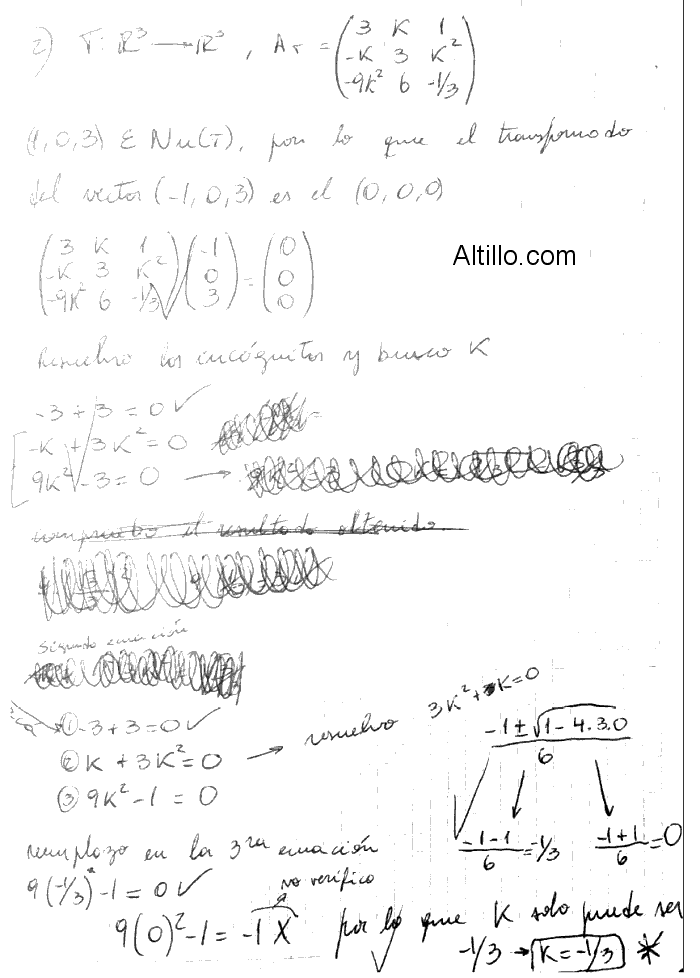 2) T: R³ → R³ , A_T = (3 K 1
-K 3 K²
-9K² 6 -1/3)
(1,0,3) ∈ Nu(T), por lo que el transformado
del vector (-1,0,3) es el (0,0,0)
Altillo.com
(3 K 1) (-1) (0)
(-K 3 K²) (0) = (0)
(-9K² 6 -1/3) (3) (0)
Resuelvo las incógnitas y busco K
-3 + 3 = 0 ✓
-K + 3K² = 0
9K² - 3 = 0 →
comprueba el resultado obtenido.
Segunda ecuación
① -3+3=0 ✓
② K + 3K² = 0 → resuelvo 3K² + K = 0
③ 9K² - 1 = 0
-1 ± √1 - 4.3.0
6
-1-1
6 = -1/3
-1+1
6 = 0
remplazo en la 3ra ecuación
9(-1/3)² - 1 = 0 ✓
no verifico
9(0)² - 1 = -1 X por lo que K solo puede ser
-1/3 → K = -1/3 *